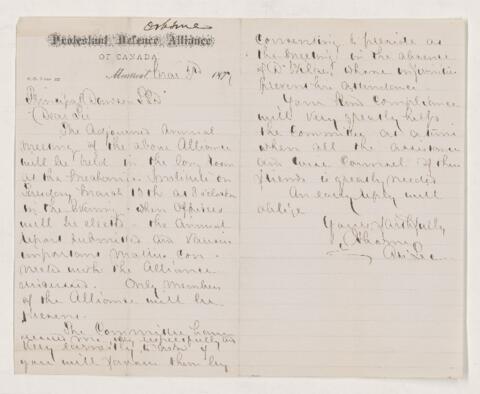 Osborne
Protestant Defence Alliance
OF CANADA
Montreal, Mar 187
Principal Dawson LLD
Dear Sir
The Adjourned Annual
meeting of the above Alliance
will be held in the
at the Mechanics Institute on
Tuesday March 13th at 8 oclock
in the Evening. When Officers
will be elected. The Annual
report submitted and various
important matters con-
nected with the Alliance
discussed. Only members
of the Alliance will be
present.
The Committee have
me very respectfully and
very earnestly to if
you will favour them by
consenting to preside at
the meeting in the absence
of Dr Wilkes whose infirmities
prevent his attendance.
Your kind compliance
will very greatly help
the Committee at a time
when all the assistance
and wise Counsel of their
friends is greatly needed
An early reply will
oblige
Yours faithfully